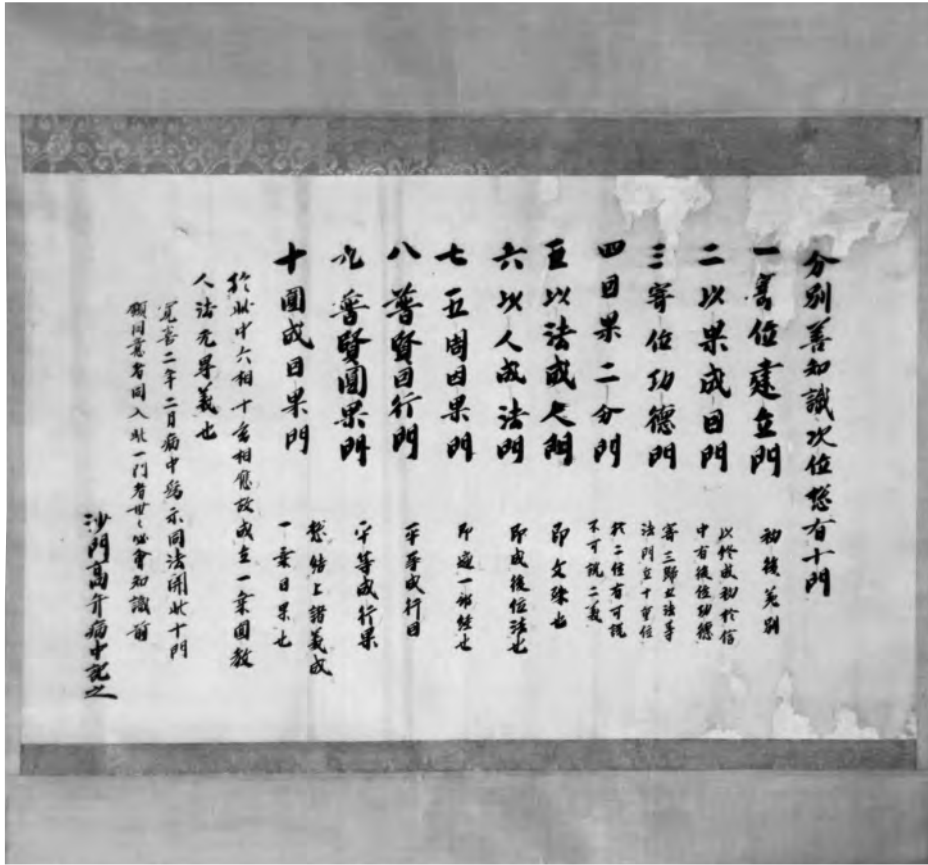 分別善知識次位惣有十門
一寄位建立門 初後差別
二以果成因門 以終成初於信
中有後位功德
三寄位功德門 寄三歸五法等
法門立十寄位
四因果二分門 於二位有可說
不可說二義
五以法成人門 即文殊也
六以人成法門 即成後位法也
七五周因果門 即遍一部經也
八普賢因行門 平等成行因
九普賢圓果門 平等成行果
十圓成因果門 惣結上諸義成
一乘因果也
於此中六相十玄相應故成立一乘圓教
人法无㝵義也
寬喜二年二月病中為示同法開此十門
願同意者同入此一門者世々必會知識前
沙門高弁病中記之